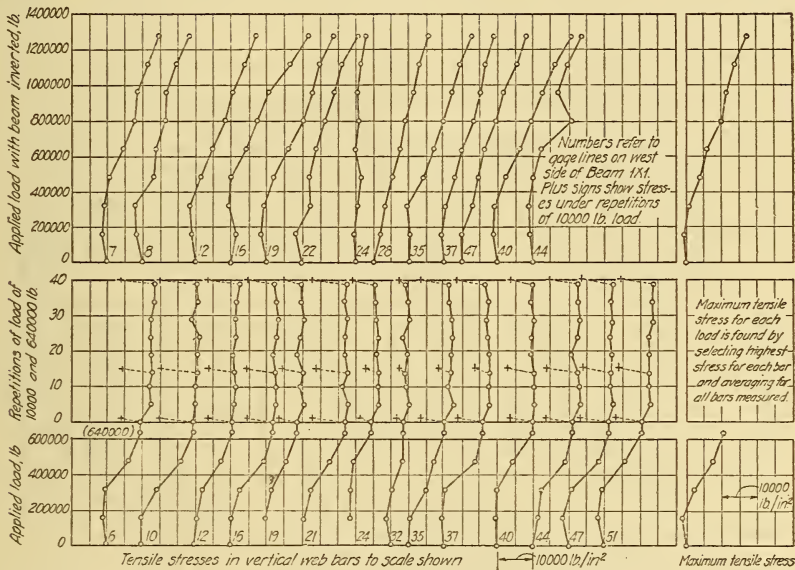 1400000
1200000
1000000
800000
600000
400000
200000
0
Applied load with beam inverted, lb.
7 8 12 15 19 22 24 28 35 37 47 40 44
Numbers refer to
gage lines on west
side of Beam 1X1.
Plus signs show stress-
es under repetitions
of 10000 lb. load.
40
30
20
10
0
Repetitions of load of
10000 and 640000 lb.
Maximum tensile
stress for each
load is found by
selecting highest
stress for each bar
and averaging for
all bars measured.
(640000)
600000
400000
200000
0
Applied load, lb
6 10 12 15 19 21 24 32 35 37 40 44 47 51
10000
lb./in²
Tensile stresses in vertical web bars to scale shown
10000 lb/in²
Maximum tensile stress